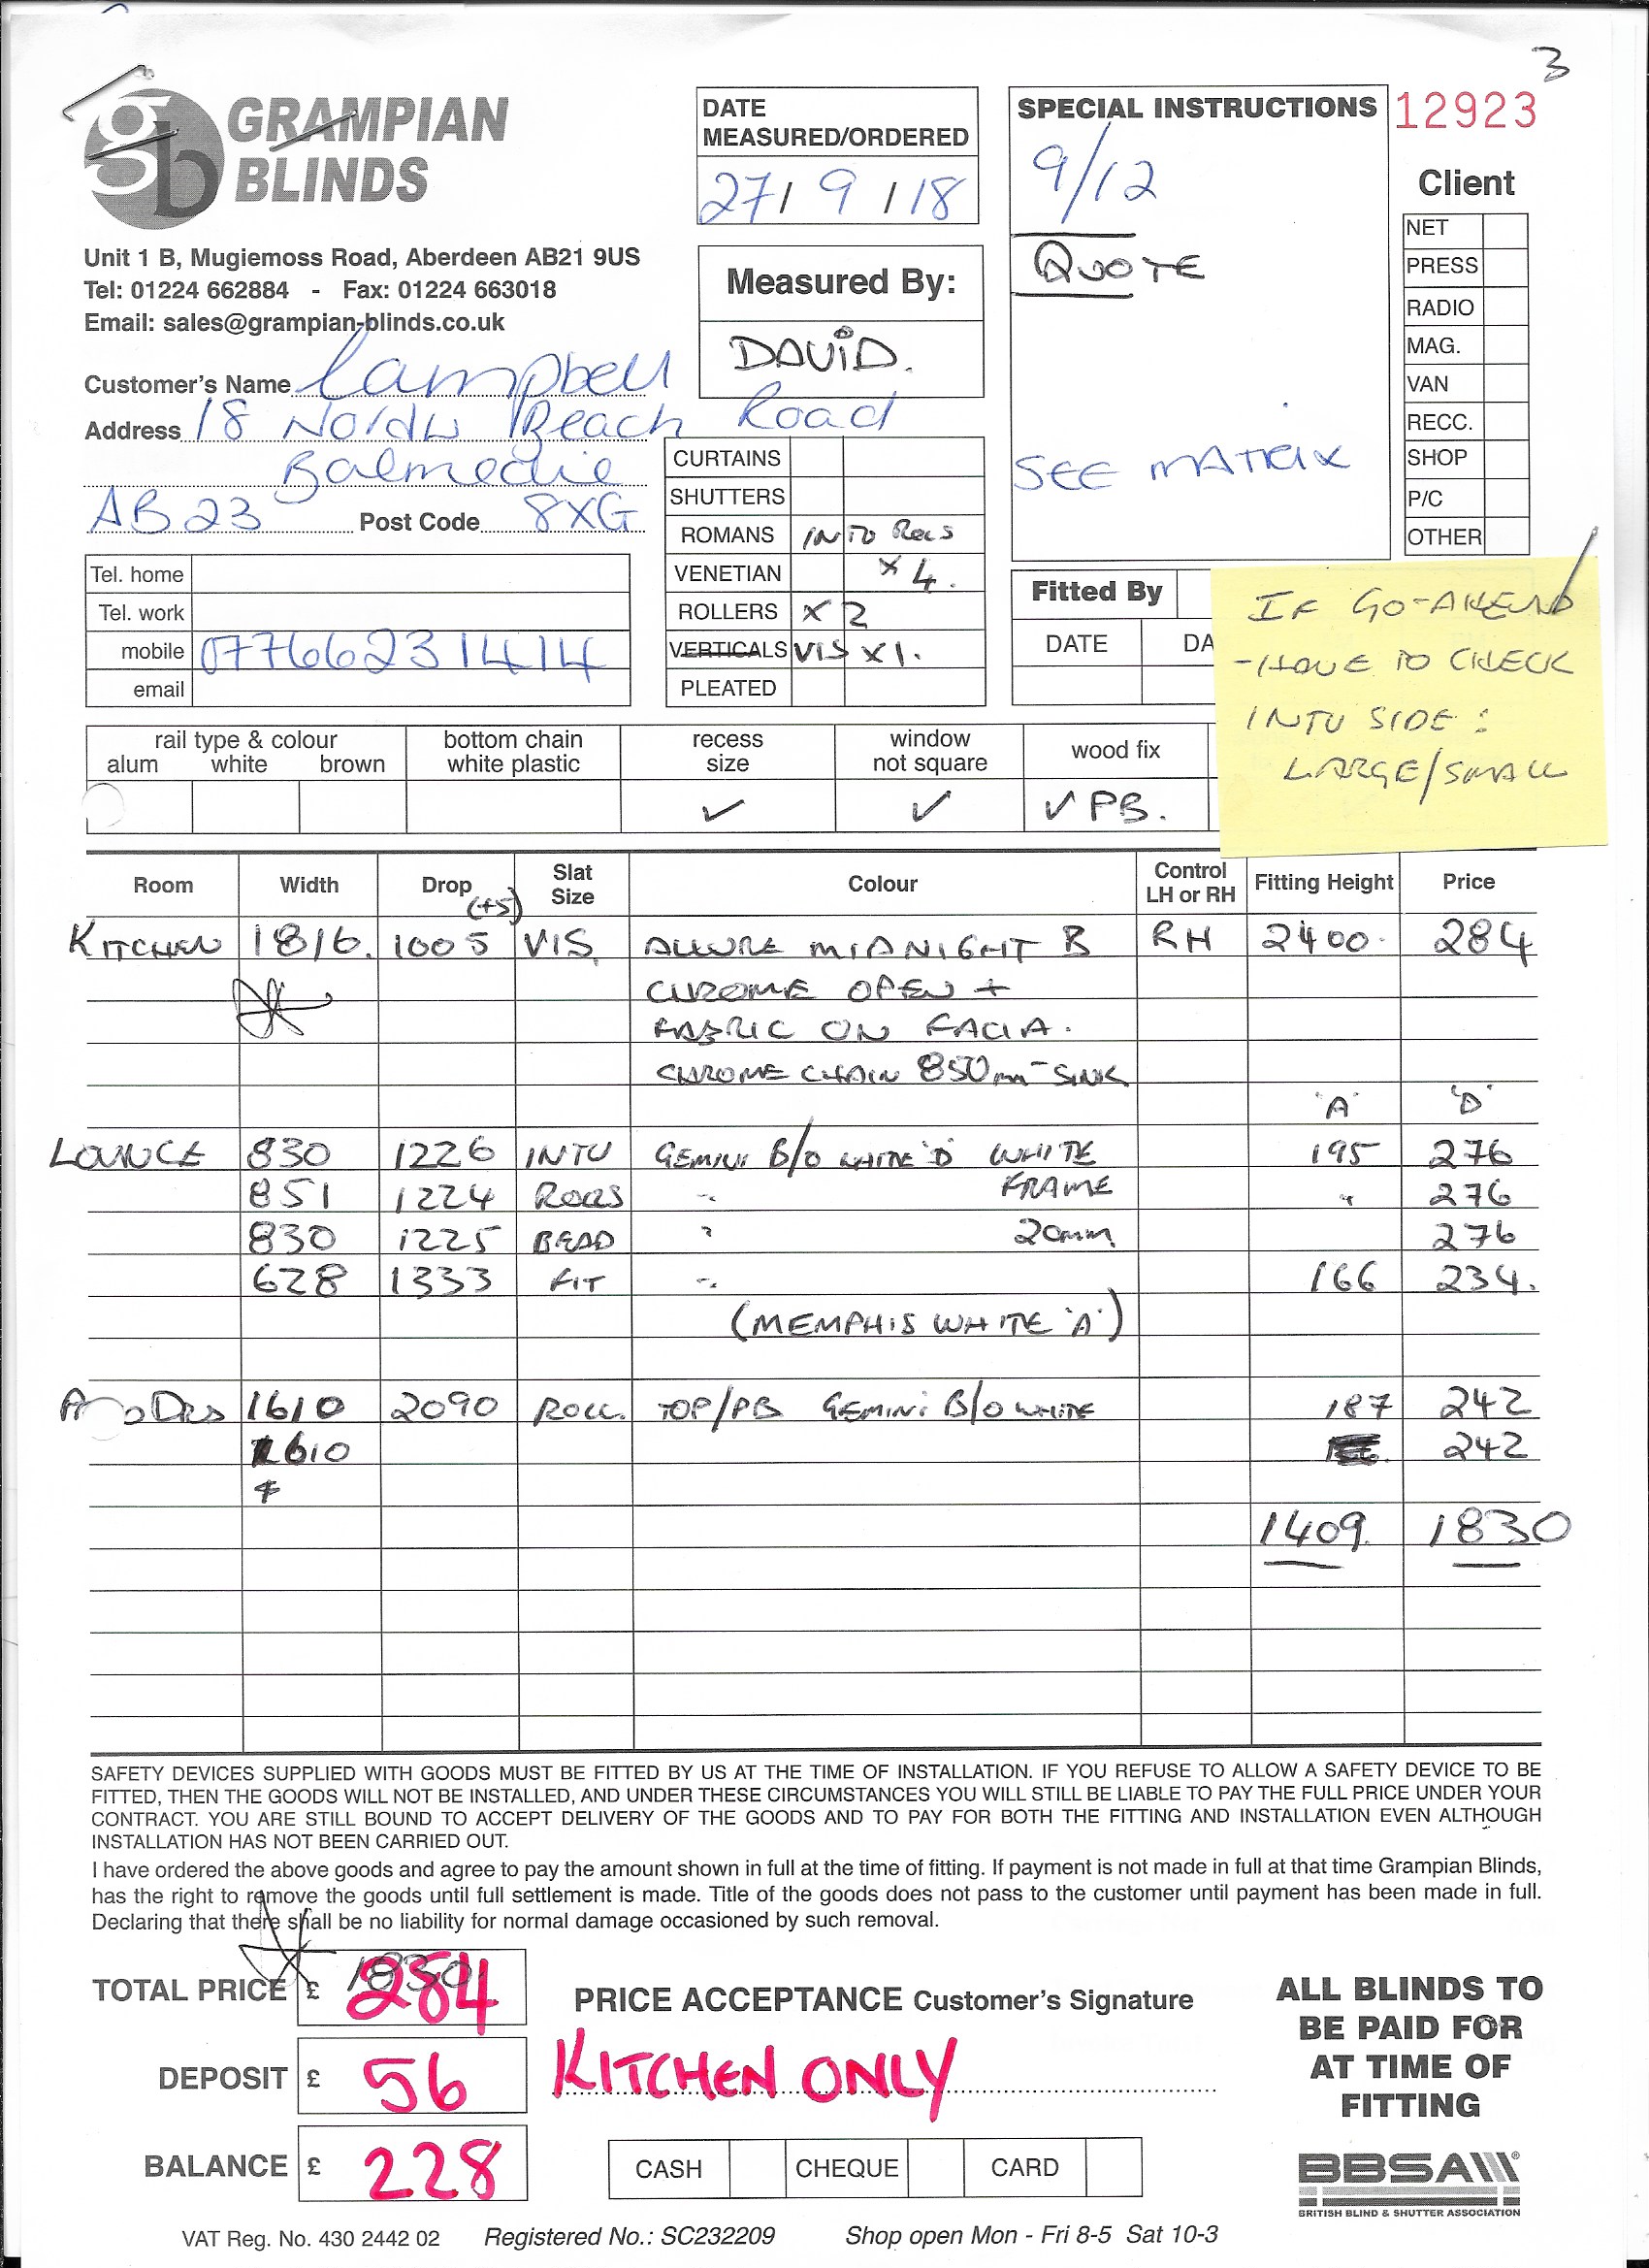 3
GRAMPIAN
BLINDS
Unit 1 B, Mugiemoss Road, Aberdeen AB21 9US
Tel: 01224 662884 - Fax: 01224 663018
Email: sales@grampian-blinds.co.uk
DATE
MEASURED/ORDERED
27/ 9 / 18
Measured By:
DAVID.
SPECIAL INSTRUCTIONS
9/12
QUOTE
SEE MATRIX
12923
Client
NET
PRESS
RADIO
MAG.
VAN
RECC.
SHOP
P/C
OTHER
Customer's Name Campbell
Address 18 North Beach Road
Balmedie
AB23 Post Code 8XG
Tel. home
Tel. work
mobile 07766231414
email
CURTAINS
SHUTTERS
ROMANS INTO Recs
VENETIAN x 4.
ROLLERS x 2
VERTICALS VIS x1.
PLEATED
Fitted By
DATE DA
IF GO-AHEAD
- HAVE TO CHECK
INTU SIDE:
LARGE/SMALL
rail type & colour
alum white brown
bottom chain
white plastic
recess
size
window
not square
wood fix
✓ ✓ ✓ PB.
Room Width Drop (+5) Slat Size Colour Control LH or RH Fitting Height Price
KITCHEN 1816. 1005 VIS ALLURE MIDNIGHT B RH 2400 284
CHROME OPEN +
FABRIC ON FACIA.
CHROME CHAIN 850mm - SINK
'A' 'D'
LOUNGE 830 1226 INTU GEMINI B/O WHITE 'D' WHITE 195 276
851 1224 ROLLS " FRAME " 276
830 1225 BEAD " 20mm 276
628 1333 FIT " 166 234.
(MEMPHIS WHITE 'A')
1610 2090 ROLL. TOP/PB GEMINI B/O WHITE 187 242
1610 242
1409. 1830
SAFETY DEVICES SUPPLIED WITH GOODS MUST BE FITTED BY US AT THE TIME OF INSTALLATION. IF YOU REFUSE TO ALLOW A SAFETY DEVICE TO BE
FITTED, THEN THE GOODS WILL NOT BE INSTALLED, AND UNDER THESE CIRCUMSTANCES YOU WILL STILL BE LIABLE TO PAY THE FULL PRICE UNDER YOUR
CONTRACT. YOU ARE STILL BOUND TO ACCEPT DELIVERY OF THE GOODS AND TO PAY FOR BOTH THE FITTING AND INSTALLATION EVEN ALTHOUGH
INSTALLATION HAS NOT BEEN CARRIED OUT.
I have ordered the above goods and agree to pay the amount shown in full at the time of fitting. If payment is not made in full at that time Grampian Blinds,
has the right to remove the goods until full settlement is made. Title of the goods does not pass to the customer until payment has been made in full.
Declaring that there shall be no liability for normal damage occasioned by such removal.
TOTAL PRICE £ 284
DEPOSIT £ 56
BALANCE £ 228
PRICE ACCEPTANCE Customer's Signature
KITCHEN ONLY
CASH CHEQUE CARD
ALL BLINDS TO
BE PAID FOR
AT TIME OF
FITTING
BBSA
BRITISH BLIND & SHUTTER ASSOCIATION
VAT Reg. No. 430 2442 02 Registered No.: SC232209 Shop open Mon - Fri 8-5 Sat 10-3